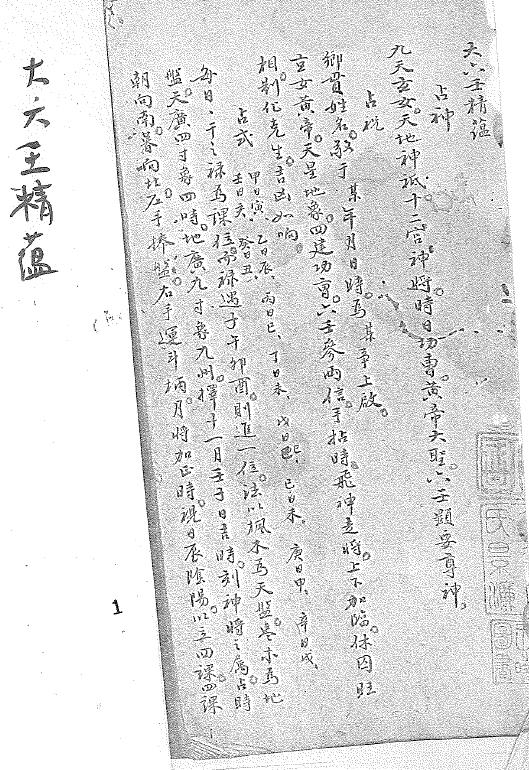 大六壬精蕴
大六壬精蘊
占神
九天玄女。天地神祇。十二宮神。將時日功曹。黃帝大聖。六壬顯要尊神。
占祝
鄉貫姓名。敬于某年月日時。為某事上啟。
玄女黃帝。天星地象。四建功曹。六壬參兩。信手拈時。飛神走將。上下加臨。休囚旺
相。制化克生。吉凶如响。
占式
甲日寅、乙日辰、丙日巳、丁日未、戊日巳、己日未、庚日申、辛日戌、
壬日亥、癸日丑、
每日干之祿為課位。祿遇子午卯酉。則進一位。法以楓木為天盤。棗木為地
盤。天廣四寸象四時。地廣九寸象九州。擇十一月壬子日吉時。刻神將之焉。占時
朝向南。暮响北。左手捧盤。右手運斗柄。月將加正時。視日辰陰陽。以立四課。四課
1